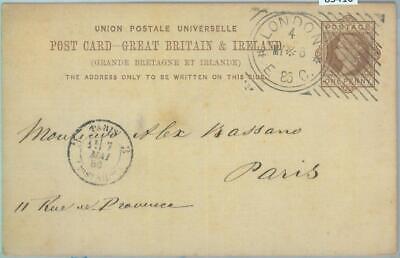 83410
UNION POSTALE UNIVERSELLE
POST CARD - GREAT BRITAIN & IRELAND
(GRANDE BRETAGNE ET IRLANDE)
THE ADDRESS ONLY TO BE WRITTEN ON THIS SIDE.
POSTAGE
ONE PENNY
LONDON
4
86
PARIS
7
MAI
86
Monsieur Alex Bassano
Paris
11 Rue de Provence